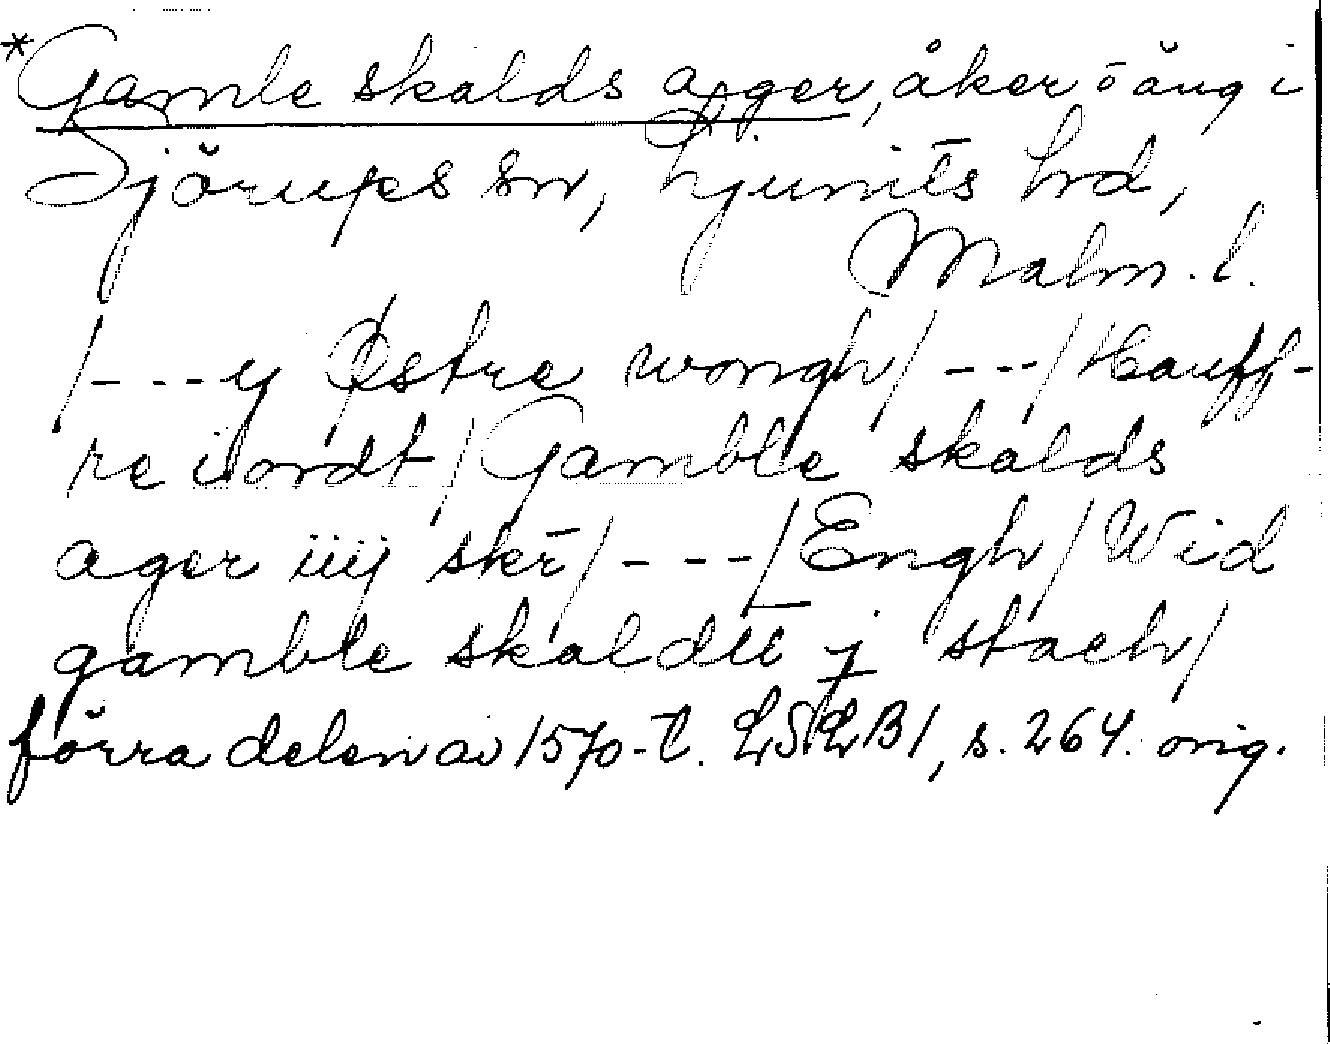 *Gamle skalds ager, åker o äng i
Sjörups sn, Ljunits hd,
Malm. l.
/---y Østre wongh/---/Hauff-
re iordt/Gamble skalds
ager iiij skr̄/---/Engh/Wid
gamble skaldu j staeh/
förra delen av 1570-t. LSLB1, s. 264. orig.